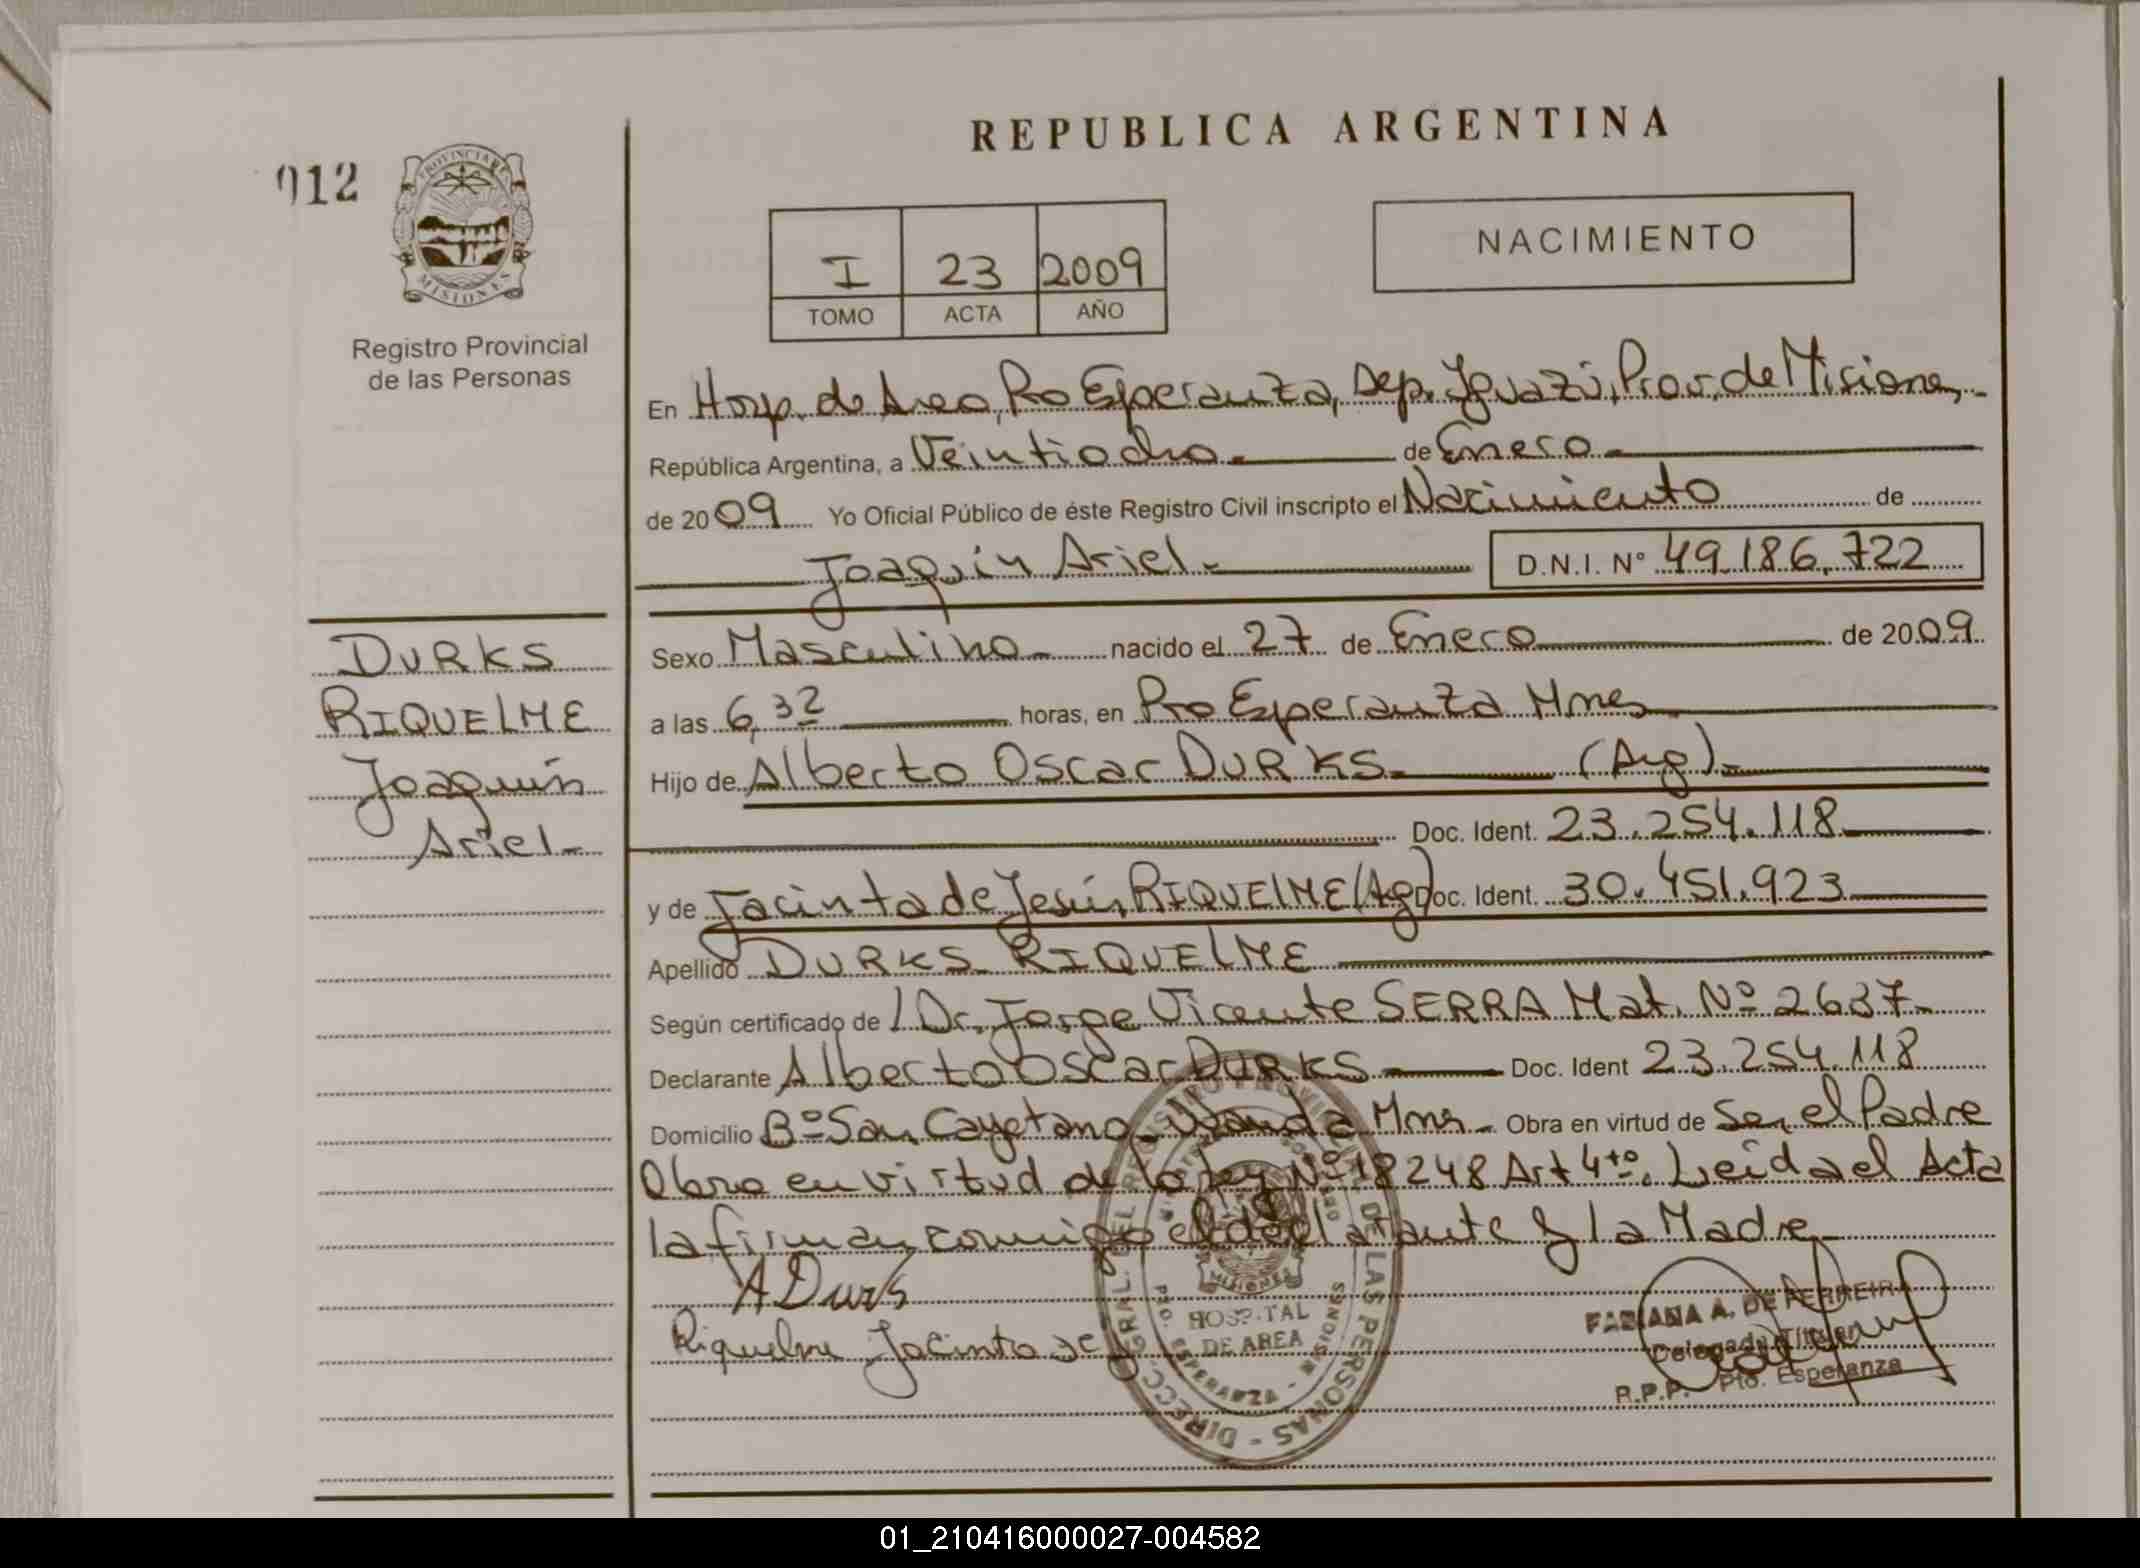 REPUBLICA ARGENTINA
012
PROVINCIA DE
MISIONES
Registro Provincial
de las Personas
I 23 2009
TOMO ACTA AÑO
NACIMIENTO
En Hosp. de Area, Pto Esperanza, Dep. Iguazú, Prov. de Misiones,
República Argentina, a Veintiocho de Enero
de 2009 Yo Oficial Público de éste Registro Civil inscripto el Nacimiento de
Joaquín Ariel.- D.N.I. Nº 49.186.722
DURKS
RIQUELME
Joaquín
Ariel-
Sexo Masculino nacido el 27 de Enero de 2009
a las 6,32 horas, en Pto Esperanza Mnes
Hijo de Alberto Oscar DURKS. (Arg).
Doc. Ident. 23.254.118
y de Jacinta de Jesús RIQUELME (Ag) Doc. Ident. 30.451.923
Apellido DURKS RIQUELME
Según certificado de / Dr. Jorge Vicente SERRA Mat. Nº 2637-
Declarante Alberto Oscar DURKS Doc. Ident 23.254.118
Domicilio Bº San Cayetano - Wanda Mnes - Obra en virtud de Ser el Padre
Obra en virtud de la ley Nº 18248 Art 4to. Leida el Acta
la firman conmigo el declarante y la Madre
A Durks
Riquelme Jacinta de J
DIRECC. GRAL. DEL REGISTRO PROVINCIAL DE LAS PERSONAS
MISIONES
HOSPITAL
DE AREA
PTO. ESPERANZA - MISIONES
FABIANA A. DE FERREIRA
Delegada Titular
R.P.P. Pto. Esperanza
01_210416000027-004582